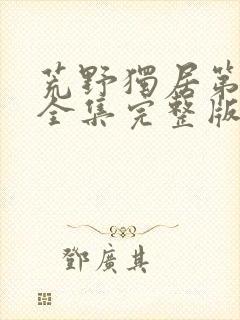 荒野獨居第
全集完整版
鄧廣其